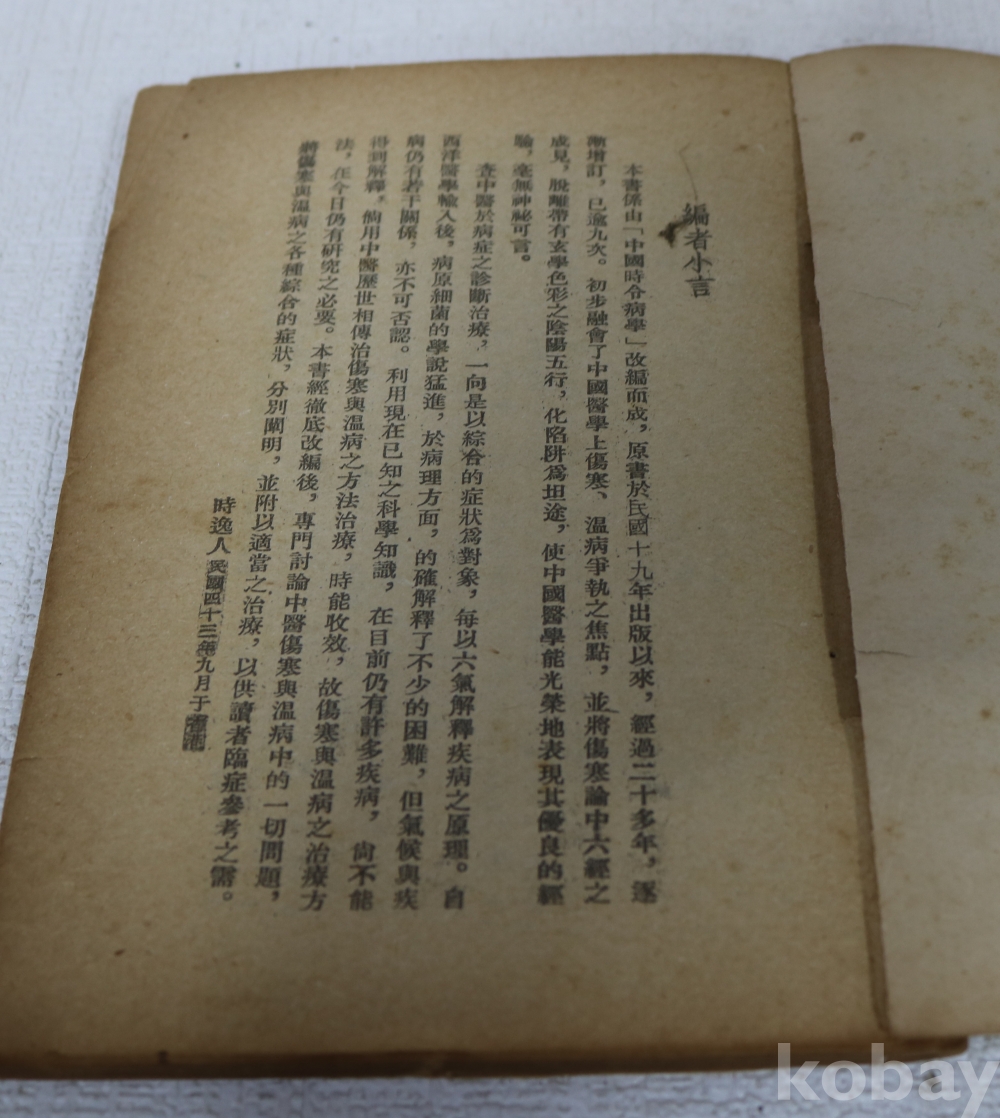 編者小言
本書係由「中國時令病學」改編而成，原書於民國十九年出版以來，經過二十多年，逐
漸增訂，已逾九次。初步融會了中國醫學上傷寒、溫病爭執之焦點，並將傷寒論中六經之
成見，脫離帶有玄學色彩之陰陽五行，化陷阱爲坦途，使中國醫學能光榮地表現其優良的經
驗，毫無神祕可言。
查中醫於病症之診斷治療，一向是以綜合的症狀爲對象，每以六氣解釋疾病之原理。自
西洋醫學輸入後，病原細菌的學說猛進，於病理方面，的確解釋了不少的困難，但氣候與疾
病仍有若于關係，亦不可否認。利用現在已知之科學知識，在目前仍有許多疾病，尙不能
得到解釋，倘用中醫歷世相傳治傷寒與溫病之方法治療，時能收效，故傷寒與溫病之治療方
法，在今日仍有研究之必要。本書經徹底改編後，專門討論中醫傷寒與溫病中的一切問題，
將傷寒與溫病之各種綜合的症狀，分別闡明，並附以適當之治療，以供讀者臨症參考之需。
時逸人民國四十三年九月于香港
kobay